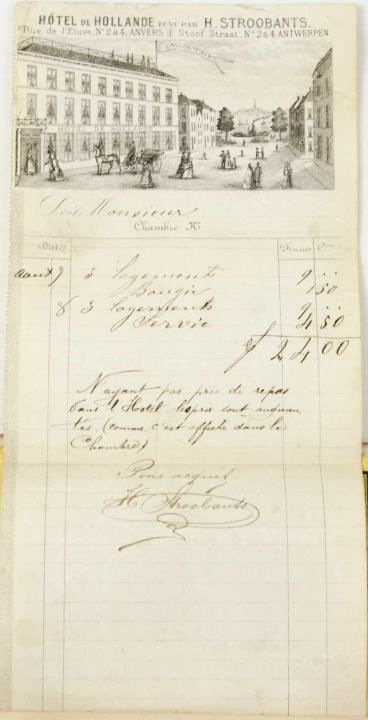 HÔTEL DE HOLLANDE TENU PAR H. STROOBANTS.
Rue de l'Etuve, Nos 2 & 4, ANVERS Stoof Straat, Nos 2 & 4 ANTWERPEN
ENGLISH SPOKEN
HOTEL DE HOLLANDE
Doit Monsieur
Chambre No
Dates Francs Cmes
Aout 7 3 logements 9 ..
Bougie 1 50
8 3 logements 9 ..
Servic 4 50
f 24 00
N'ayant pas pris de repas
dans l'Hotel, les prix sont augmen
tés. (comme c'est affiché dans la
Chambre)
Pour acquit
H. Stroobants